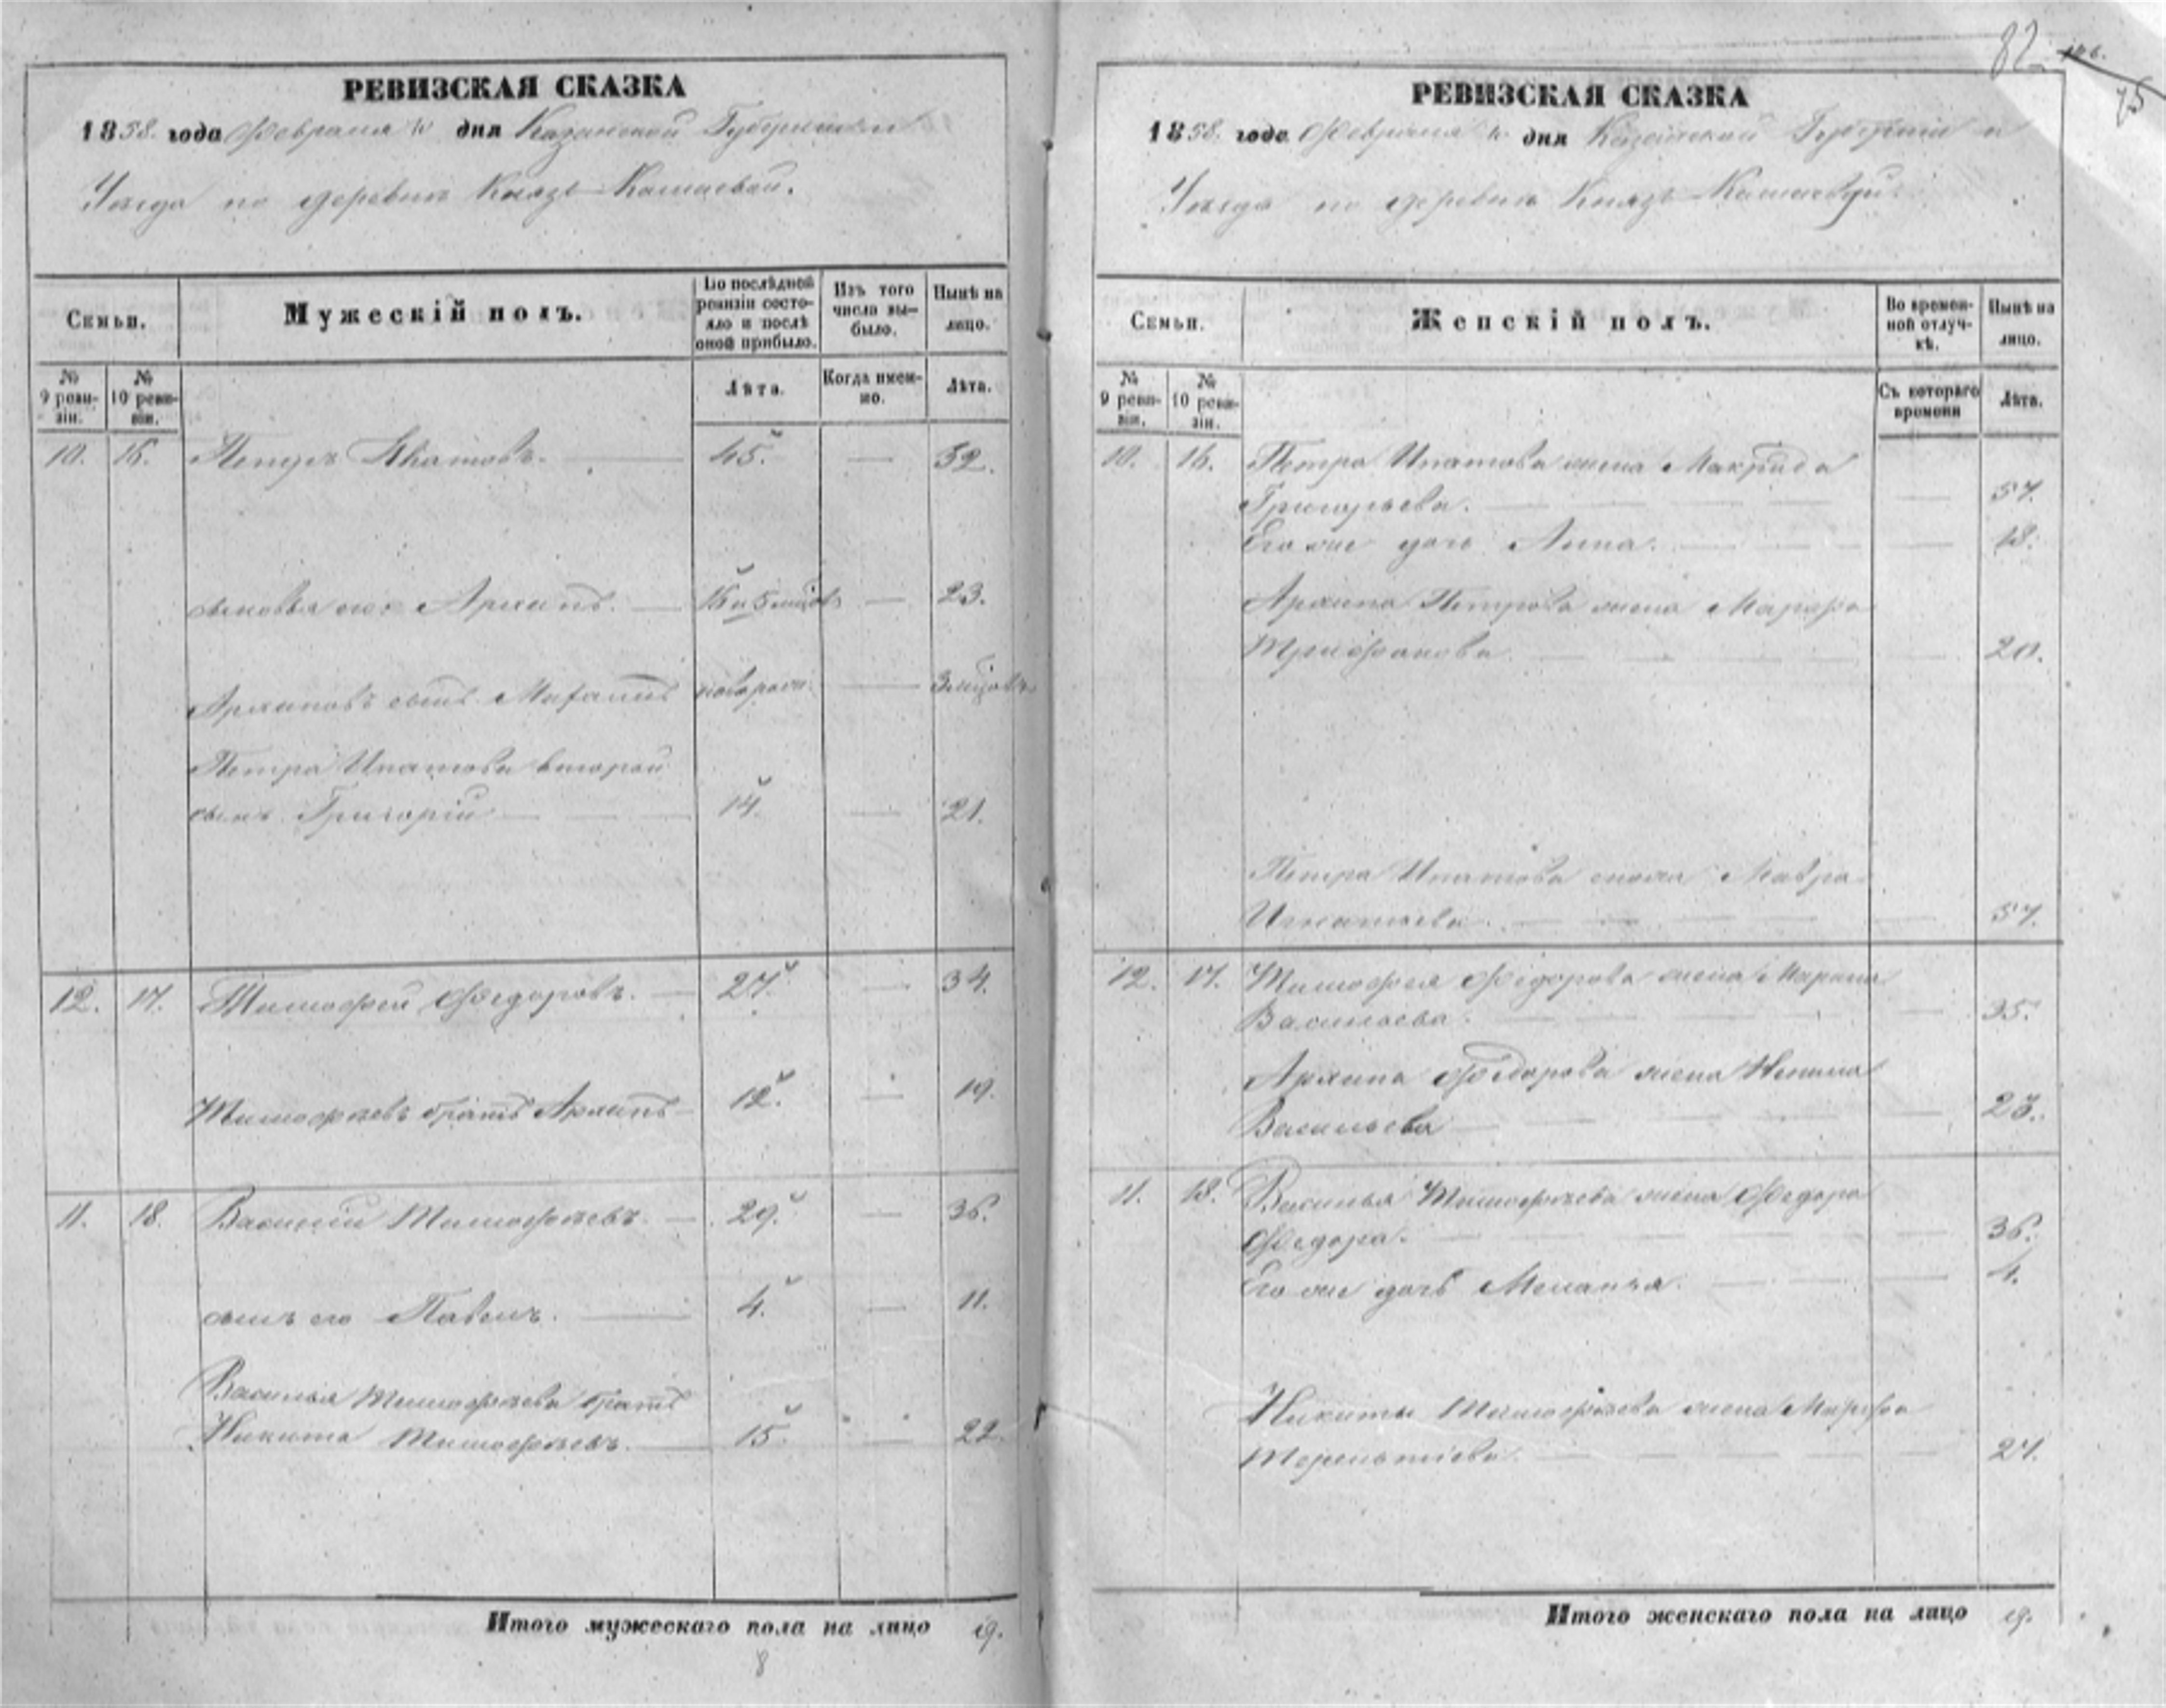 РЕВИЗСКАЯ СКАЗКА
1858. года Февраля дня Казанской Губерніи и
Уѣзда по деревнѣ Князь-Камаевой.
Семьи.
Мужескій полъ.
По послѣдней ревизіи состояло и послѣ оной прибыло.
Изъ того числа выбыло.
Нынѣ на лицо.
№ 9 ревизіи.
№ 10 ревизіи.
Лѣта.
Когда именно.
Лѣта.
10. 16. Петръ Ипатовъ. 45. — 52.
сыновья его Архипъ. 15 и 5 мѣсяц. — 23.
Архиповъ сынъ новорож. — 3 мѣсяц.
Петра Ипатова второй
сынъ Григорій 14. — 21.
12. 17. Тимофей Федоровъ. 27. — 34.
Тимофеевъ братъ Архипъ 12. — 19.
11. 18. Василий Тимофѣевъ. 29. — 36.
сынъ его Павелъ. 4. — 11.
Василья Тимофѣева братъ
Никита Тимофѣевъ. 15. — 22.
Итого мужескаго пола на лицо 9.
8
82
75
РЕВИЗСКАЯ СКАЗКА
1858. года Февраля дня Казанской Губерніи и
Уѣзда по деревнѣ Князь-Камаевой.
Семьи.
Женскій полъ.
Во временной отлучкѣ.
Нынѣ на лицо.
№ 9 ревизіи.
№ 10 ревизіи.
Съ котораго времени
Лѣта.
10. 16. Петра Ипатова жена Макрида
Григорьева. — 57.
Его же дочь Анна. — 18.
Архипа Петрова жена Марфа
Трифонова — 20.
Петра Ипатова Мавра
Игнатьева — 57.
12. 17. Тимофея Федорова жена Марина
Васильева. — 35.
Архипа Федорова жена
Васильева — 23.
11. 18. Василья Тимофѣева жена Федора
Федора. — 36.
Его же дочь Меланья. — 4.
Никиты Тимофѣева жена Марфа
Терентіева — 24.
Итого женскаго пола на лицо 9.